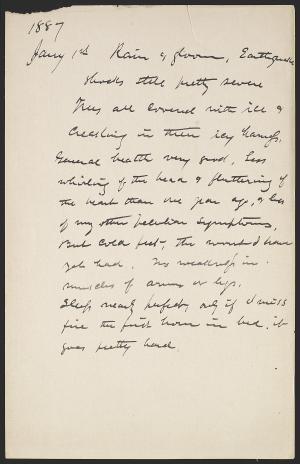 1887
Jany 1st Rain & gloom, Earthquake
shocks still pretty severe
Trees all covered with ice &
creashing in their icy
General health very good. Less
whirling of the head & fluttering of
the heart than one year ago, & less
of my other peculiar symptoms,
But cold feet, the worst I have
yet had. No weakness in
muscles of arms or legs.
Sleep nearly perfect, only if I miss
fire the first hour in bed, it
goes pretty hard.